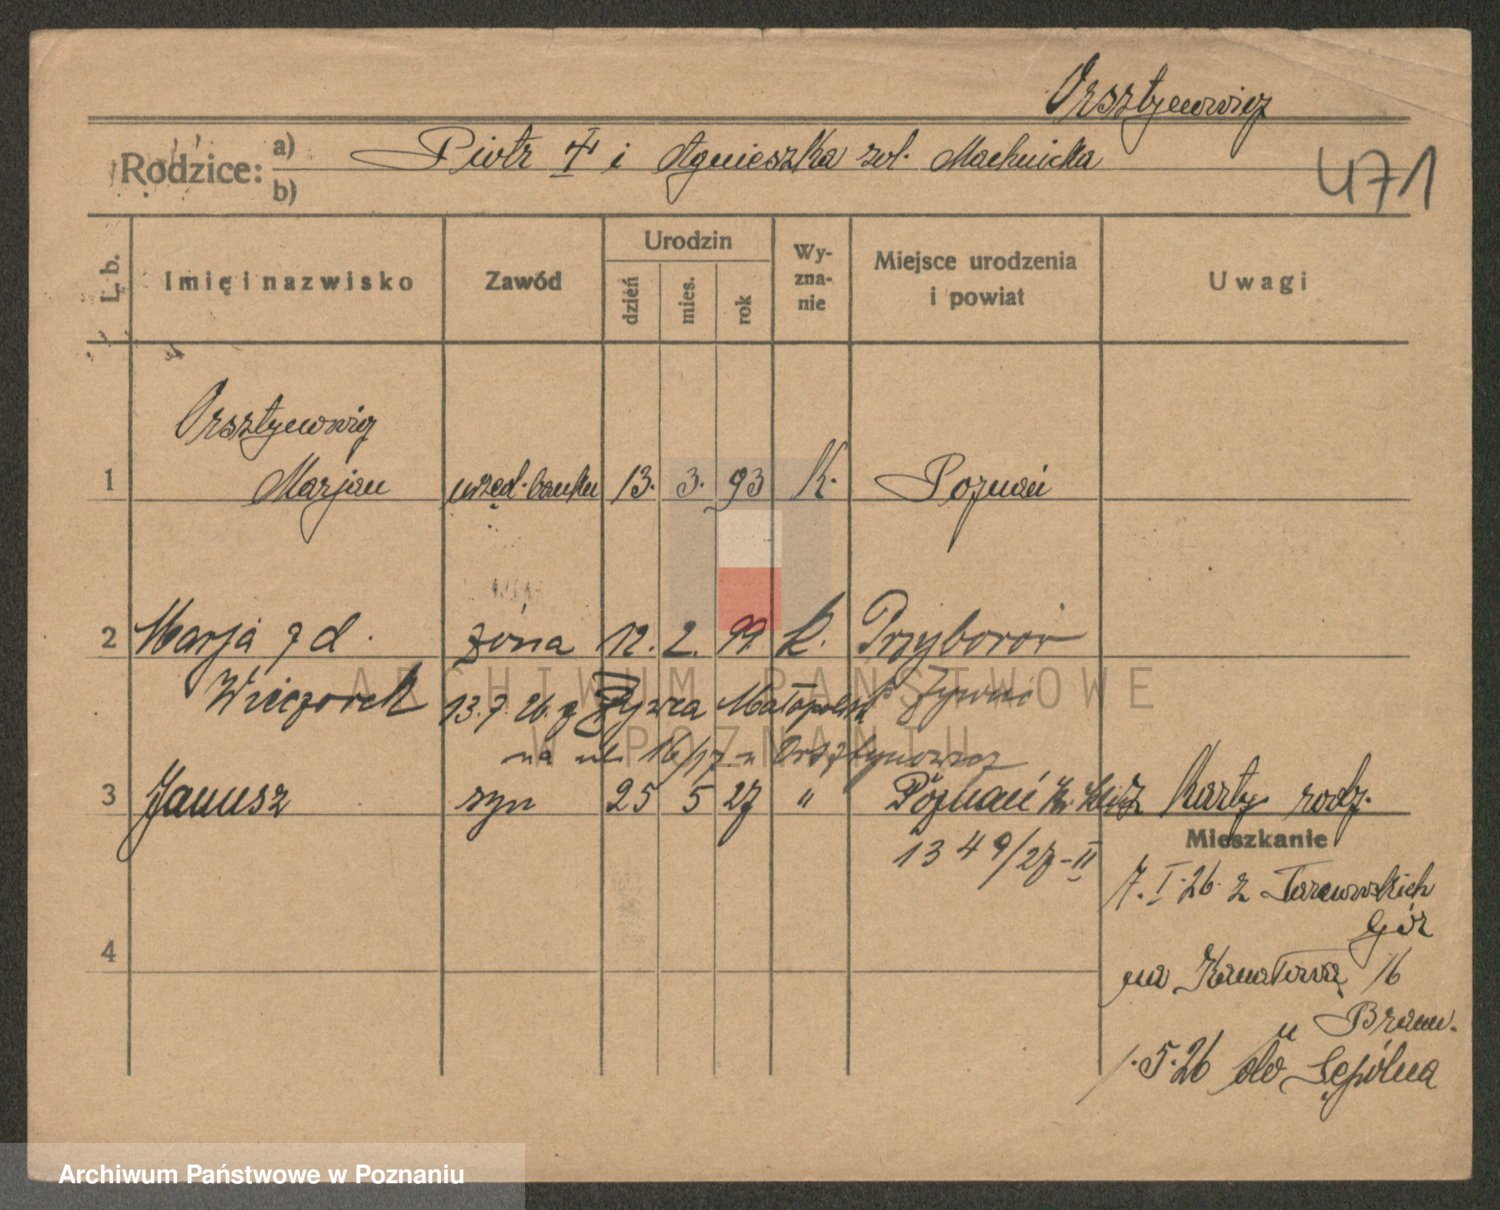 Orsztynowicz
Rodzice: a) Piotr † i Agnieszka zd. Machnicka
b)
471
L. b.
Imię i nazwisko
Zawód
Urodzin
dzień
mies.
rok
Wy-
zna-
nie
Miejsce urodzenia
i powiat
Uwagi
Orsztynowicz
1 Marjan urzęd. banku 13. 3. 93 K. Poznań
2 Marja z d. żona 12. 2. 99 K. Przyborów
Wieczorek 13.7.26. z Żywca Małopolsk Żywiec
na ul. 16/17 u Orsztynowicz
3 Janusz syn 25 5 27 " Poznań Karty rodz.
1349/27-II
Mieszkanie
7.I.26. z Tarnowskich
Gór
na Kanałową 16
u Braun.
1.5.26 do Sępólna
4
ARCHIWUM PAŃSTWOWE
W POZNANIU
Archiwum Państwowe w Poznaniu